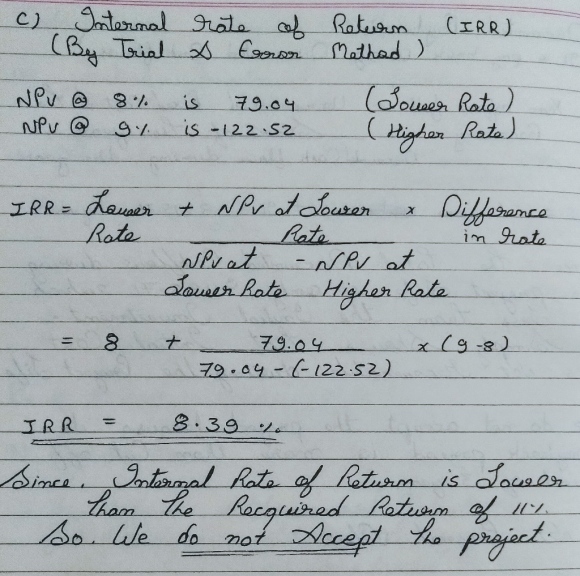 c) Internal Rate of Return (IRR)
(By Trial & Error Method)
NPV @ 8% is 79.04 (Lower Rate)
NPV @ 9% is -122.52 (Higher Rate)
IRR = Lower + NPV at Lower x Difference
Rate Rate in rate
NPV at - NPV at
Lower Rate Higher Rate
= 8 + 79.04 x (9-8)
79.04-(-122.52)
IRR = 8.39 %
Since, Internal Rate of Return is Lower
than the Recquired Return of 11%.
So. We do not Accept the project.